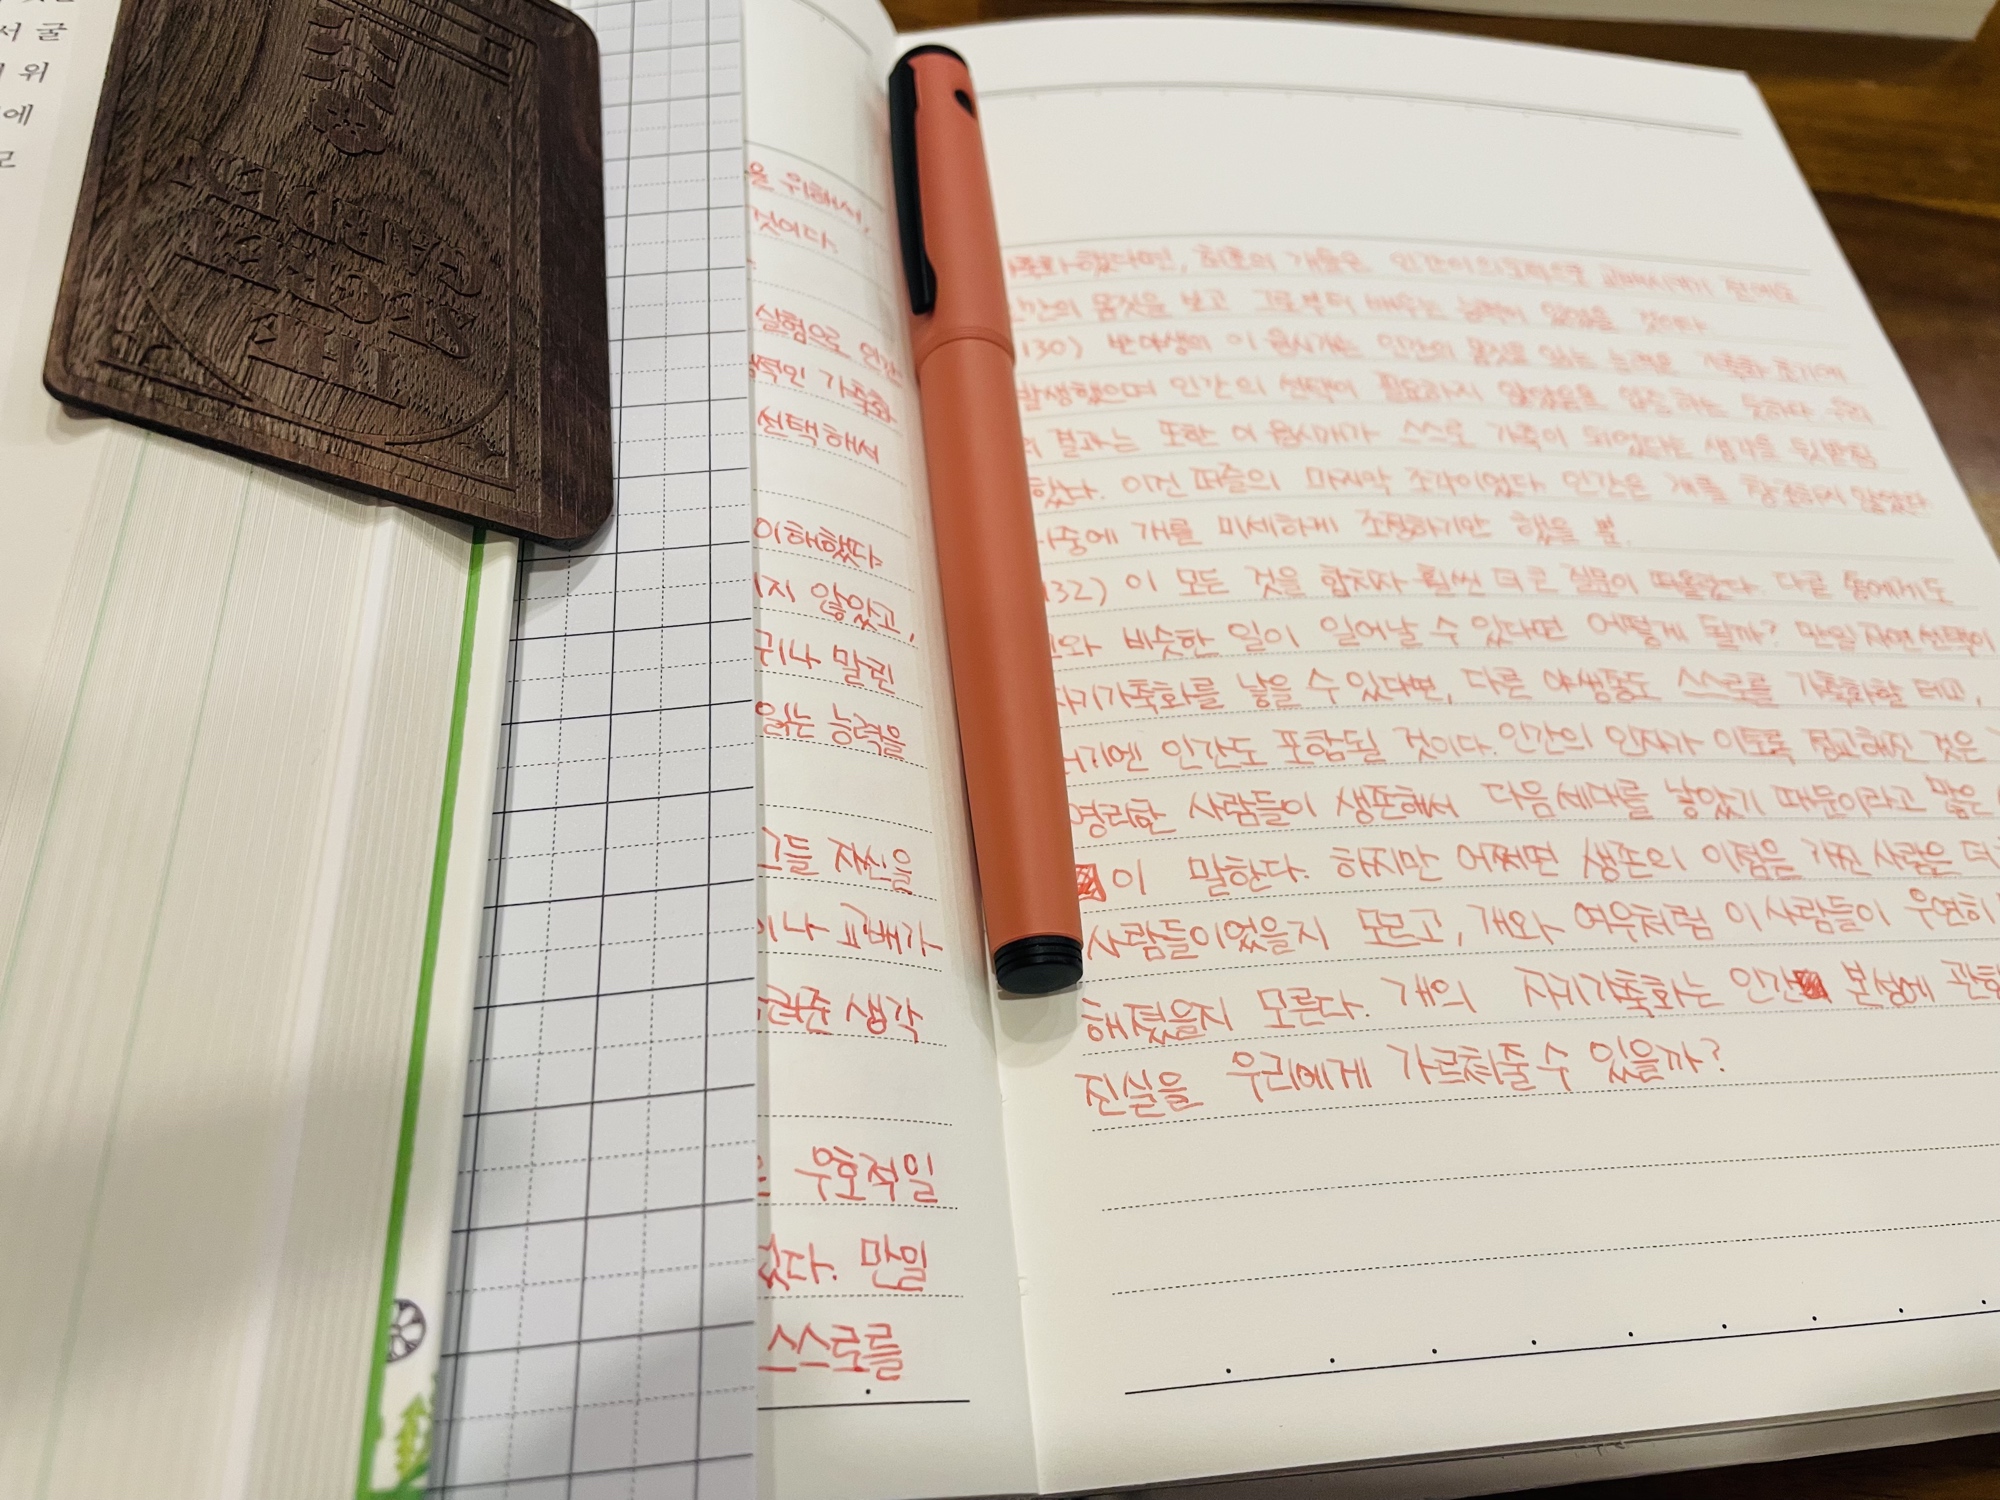 서 굴
위
에
THE
SECRET
GARDEN
을 위해서,
것이다.
실험으로 인간
력인 가축화
선택해서
이해했다
지 않았고,
귀나 말린
읽는 능력을
그들 자신을
이나 교배가
려준 생각
우호적일
었다. 만일
스스로를
했다면, 최초의 개들은 인간이 의도적으로 교배시키기 전에도
간의 몸짓을 보고 그로부터 배우는 능력이 있었을 것이다.
130) 반야생의 이 원시개는 인간의 몸짓을 읽는 능력은 가축화 초기에
발생했으며 인간의 선택이 필요하지 않았음을 암시하는 듯하다. 우리
의 결과는 또한 이 원시개가 스스로 가축이 되었다는 생각을 뒷받침
했다. 이건 퍼즐의 마지막 조각이었다. 인간은 개를 창조하지 않았다.
나중에 개를 미세하게 조정하기만 했을 뿐.
132) 이 모든 것을 합치자 훨씬 더 큰 질문이 떠올랐다. 다른 종에게도
와 비슷한 일이 일어날 수 있다면 어떻게 될까? 만일 자연선택이
자기가축화를 낳을 수 있다면, 다른 야생종도 스스로를 가축화할 테고,
거기엔 인간도 포함될 것이다. 인간의 인지가 이토록 정교해진 것은
영리한 사람들이 생존해서 다음세대를 낳았기 때문이라고 많은
이 말한다. 하지만 어쩌면 생존의 이점을 가진 사람은 더
사람들이었을지 모르고, 개와 여우처럼 이 사람들이 우연히
해졌을지 모른다. 개의 자기가축화는 인간 본성에 관한
진실을 우리에게 가르쳐줄 수 있을까?